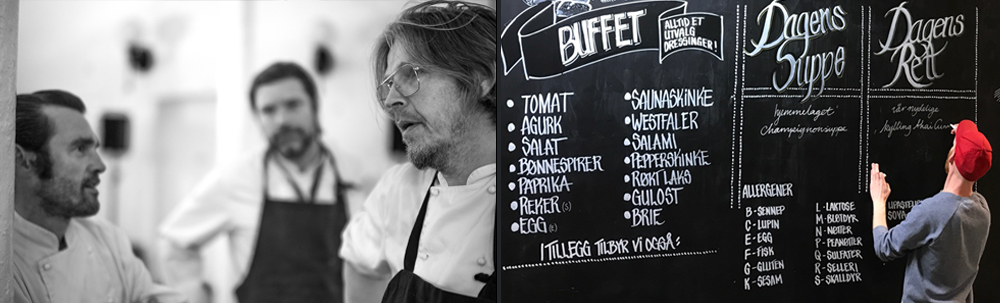 BUFFET
ALLTID ET
UTVALG
DRESSINGER!
TOMAT
AGURK
SALAT
BØNNESPIRER
PAPRIKA
REKER (S)
EGG (E)
SAUNASKINKE
WESTFALER
SALAMI
PEPPERSKINKE
RØKT LAKS
GULOST
BRIE
I TILLEGG TILBYR VI OGSÅ:
Dagens
Suppe
hjemmelaget
champignonsuppe
ALLERGENER
B - SENNEP
C - LUPIN
E - EGG
F - FISK
G - GLUTEN
K - SESAM
L - LAKTOSE
M - BLØTDYR
N - NØTTER
P - PEANØTTER
Q - SULFATER
R - SELLERI
S - SKALLDYR
Dagens
Rett
vår nydelige
kylling thai
SOYA